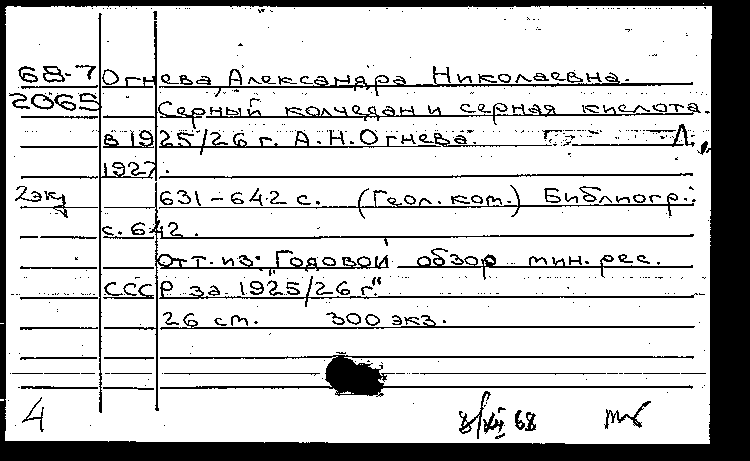 68-7 Огнева, Александра Николаевна.
2065 Серный колчедан и серная кислота
в 1925/26 г. А.Н.Огнева. Л.,
1927.
2экз 631-642 с. (Геол. ком.) Библиогр.:
с. 642.
Отт. из: "Годовой обзор мин. рес.
СССР за 1925/26 г."
26 см. 300 экз.
4 8/XII 68